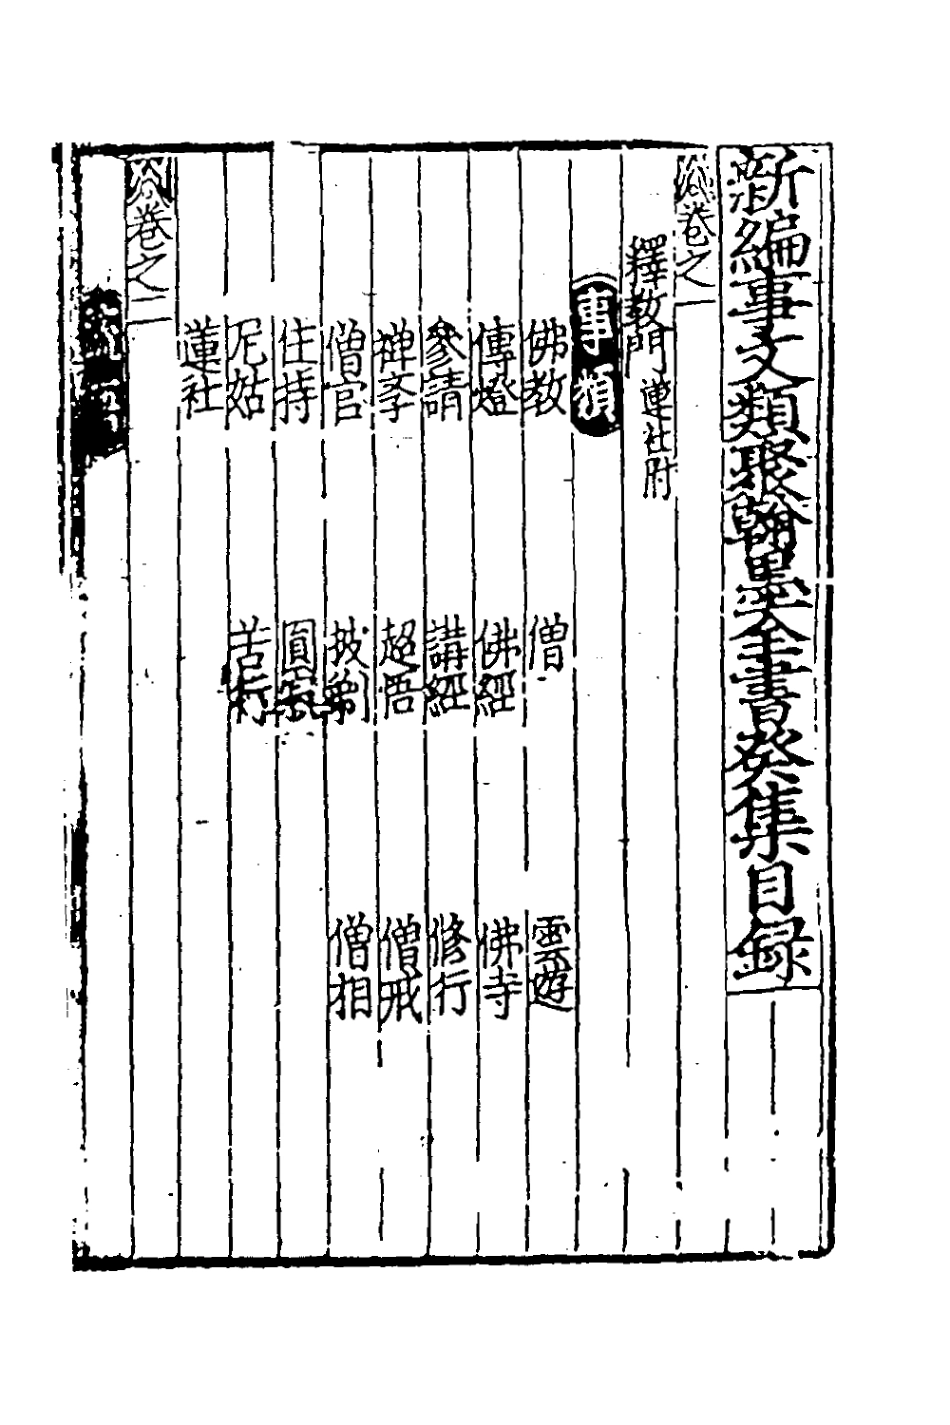 新編事文類聚翰墨大全書癸集目録
卷之一
釋教門 蓮社附
事類
佛教 僧 雲遊
傳燈 佛經 佛寺
參請 講經 修行
禅季 超悟 僧戒
僧官 披剃 僧相
住持 圓寂
尼姑 苦行
蓮社
卷之二